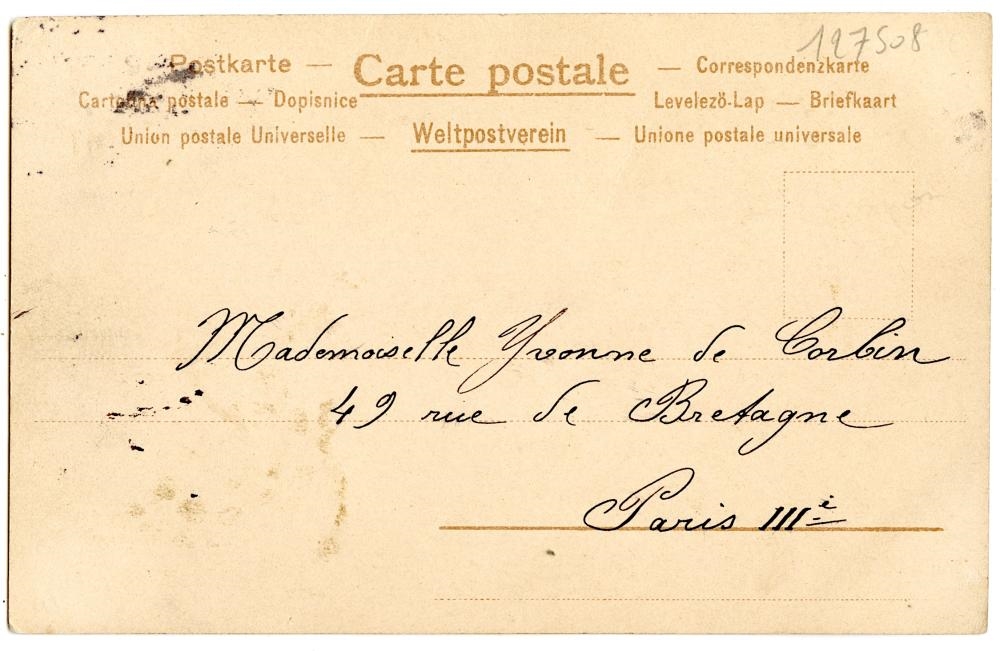 127508
Postkarte — Carte postale — Correspondenzkarte
Cartolina postale — Dopisnice Levelező-Lap — Briefkaart
Union postale Universelle — Weltpostverein — Unione postale universale
Mademoiselle Yvonne de Corbin
49 rue de Bretagne
Paris IIIe